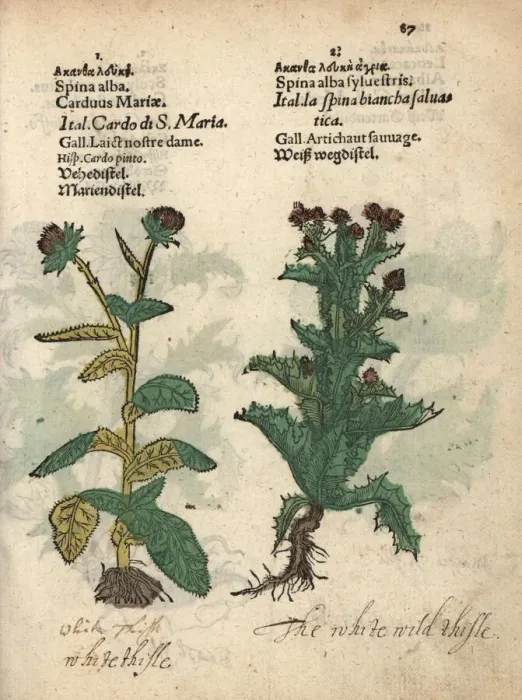 67
1.
Ακανθα λευκή.
Spina alba.
Carduus Mariæ.
Ital. Cardo di S. Maria.
Gall. Laict nostre dame.
Hisp. Cardo pinto.
Vehedistel.
Mariendistel.
2.
Ακανθα λευκὴ ἀγρία.
Spina alba sylvestris.
Ital. la spina biancha salua-
tica.
Gall. Artichaut sauuage.
Weiß wegdistel.
white thisle
white thisle
The white wild thisle.